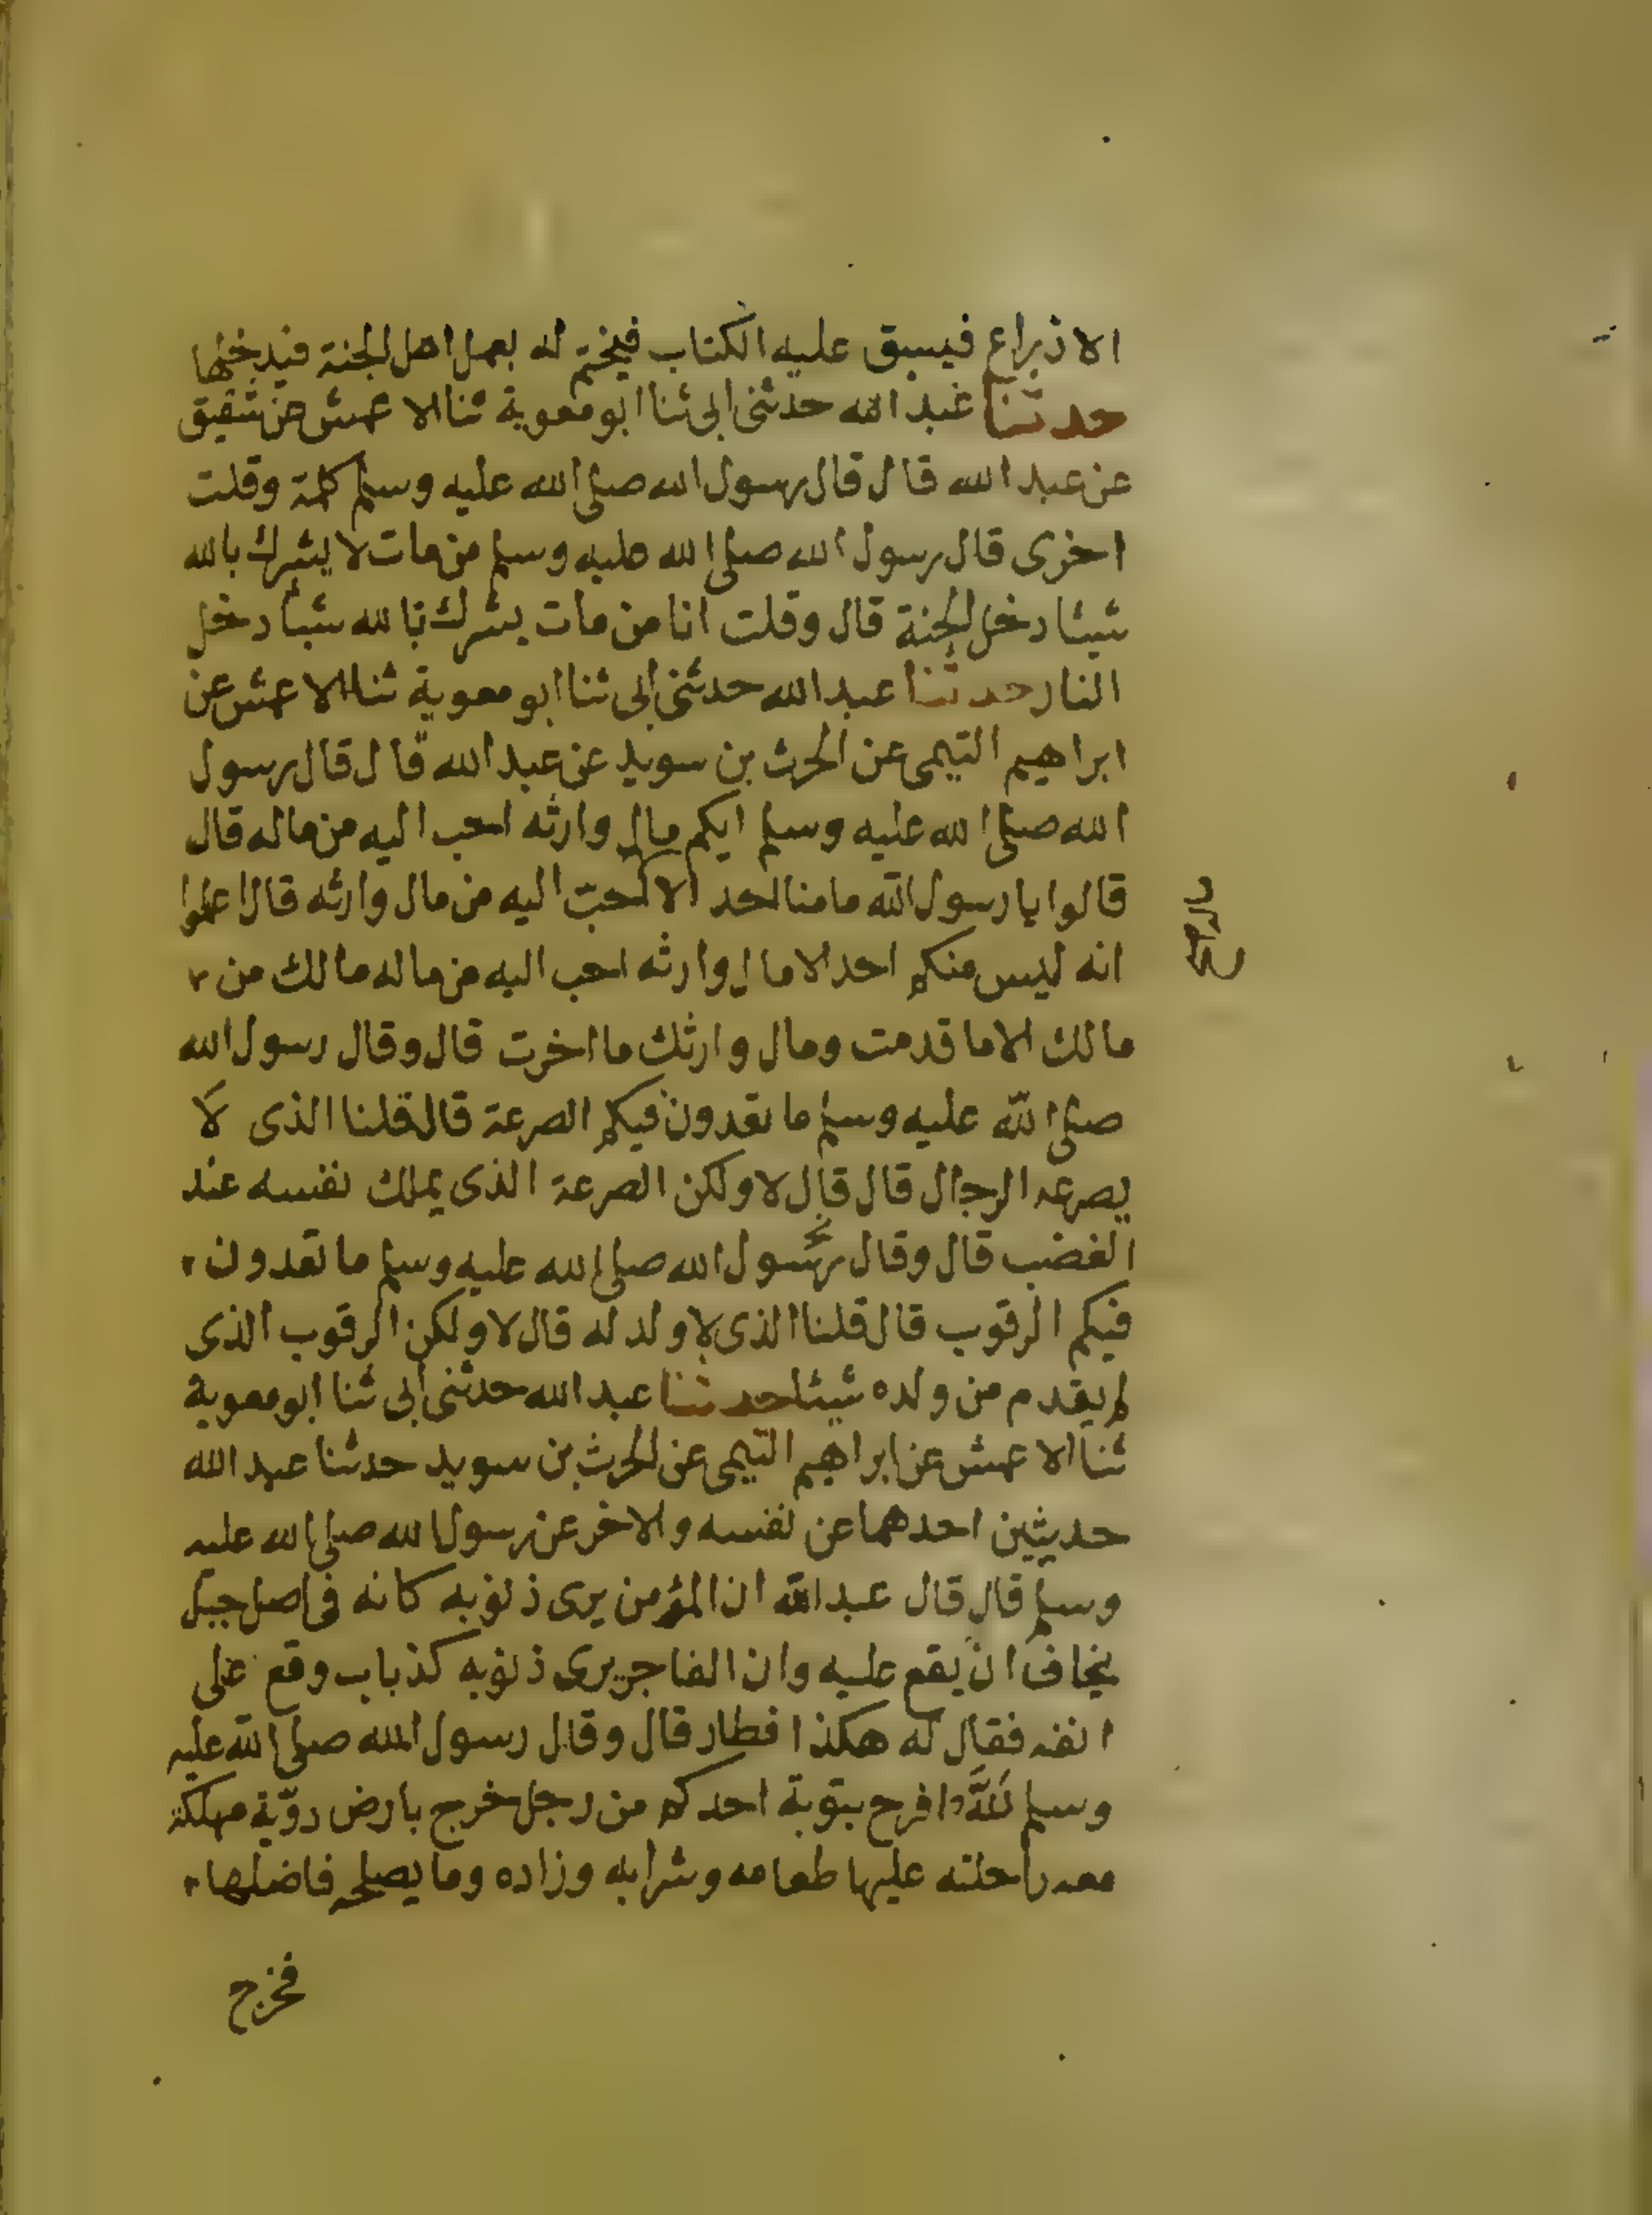 الا ذراع فيسبق عليه الكتاب فيختم له بعمل اهل الجنة فيدخلها
حدثنا عبد الله حدثنى ابى ثنا ابو معوية ثنا الاعمش عن شقيق
عن عبد الله قال قال رسول الله صلى الله عليه وسلم كلمة وقلت
اخرى قال رسول الله صلى الله عليه وسلم من مات لا يشرك بالله
شيئا دخل الجنة قال وقلت انا من مات يشرك بالله شيئا دخل
النار حدثنا عبد الله حدثنى ابى ثنا ابو معوية ثنا الاعمش عن
ابراهيم التيمى عن الحرث بن سويد عن عبد الله قال قال رسول
الله صلى الله عليه وسلم ايكم مال وارثه احب اليه من ماله قال
قالوا يا رسول الله ما منا احد الا احب اليه من مال وارثه قال اعلموا
انه ليس منكم احد الا مال وارثه احب اليه من ماله مالك من
مالك الا ما قدمت ومال وارثك ما اخرت قال وقال رسول الله
صلى الله عليه وسلم ما تعدون فيكم الصرعة قال قلنا الذى لا
يصرعه الرجال قال قال لا ولكن الصرعة الذى يملك نفسه عند
الغضب قال وقال رسول الله صلى الله عليه وسلم ما تعدون
فيكم الرقوب قال قلنا الذى لا ولد له قال لا ولكن الرقوب الذى
لم يقدم من ولده شيئا حدثنا عبد الله حدثنى ابى ثنا ابو معوية
ثنا الاعمش عن ابراهيم التيمى عن الحرث بن سويد حدثنا عبد الله
حديثين احدهما عن نفسه والاخر عن رسول الله صلى الله عليه
وسلم قال قال عبد الله ان المؤمن يرى ذنوبه كانه فى اصل جبل
يخاف ان يقع عليه وان الفاجر يرى ذنوبه كذباب وقع على
انفه فقال له هكذا فطار قال وقال رسول الله صلى الله عليه
وسلم لله افرح بتوبة احدكم من رجل خرج بارض دوية مهلكة
معه راحلته عليها طعامه وشرابه وزاده وما يصلحه فاضلها
فخرج